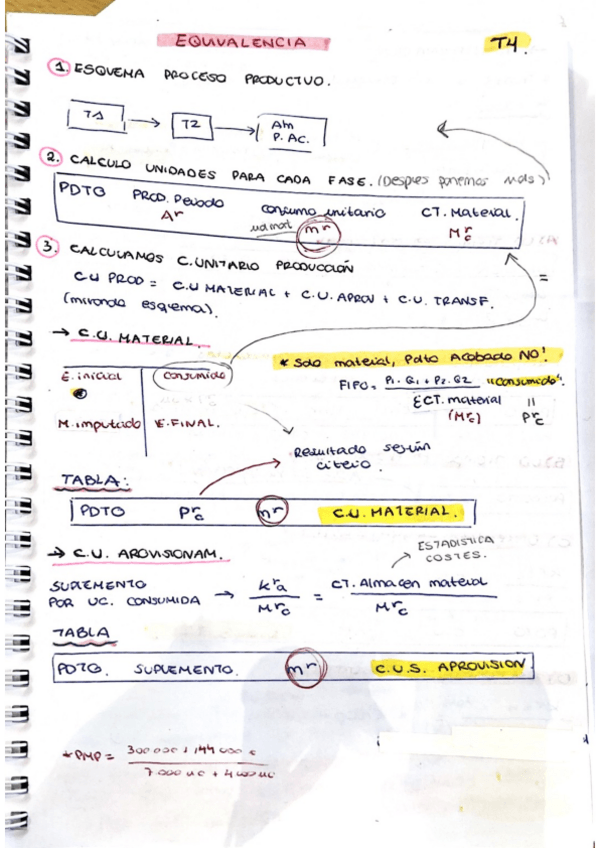 EQUIVALENCIA
T4.
1. ESQUEMA PROCESO PRODUCTIVO.
T1 → T2 → Alm P. Ac.
2. CALCULO UNIDADES PARA CADA FASE. (Despues ponemos mas)
PDTO PROD. Periodo consumo unitario CT. Material.
Ar ud mat mr Mrc
3. CALCULAMOS C. UNITARIO PRODUCCIÓN
CU PROD = C.U MATERIAL + C.U. APROV + C.U. TRANSF.
(mirando esquema).
=
→ C.U. MATERIAL.
* Solo material, Pdto Acabado NO!
E. inicial consumido
FIFO = P1·Q1 + P2·Q2 "consumido".
ΣCT. material =
(Mrc) Prc
M. imputado E. FINAL.
Resultado según
citerio.
TABLA:
PDTO Prc mr C.U. MATERIAL.
→ C.U. APROVISIONAM.
ESTADISTICA
COSTES.
SUPLEMENTO
POR UC. CONSUMIDA → kra / Mrc = CT. Almacen material / Mrc
TABLA
PDTO. SUPLEMENTO. mr C.U.S. APROVISION
*PMP = 300 000 + 144 000 €
7 000 uc + 4 000 uc